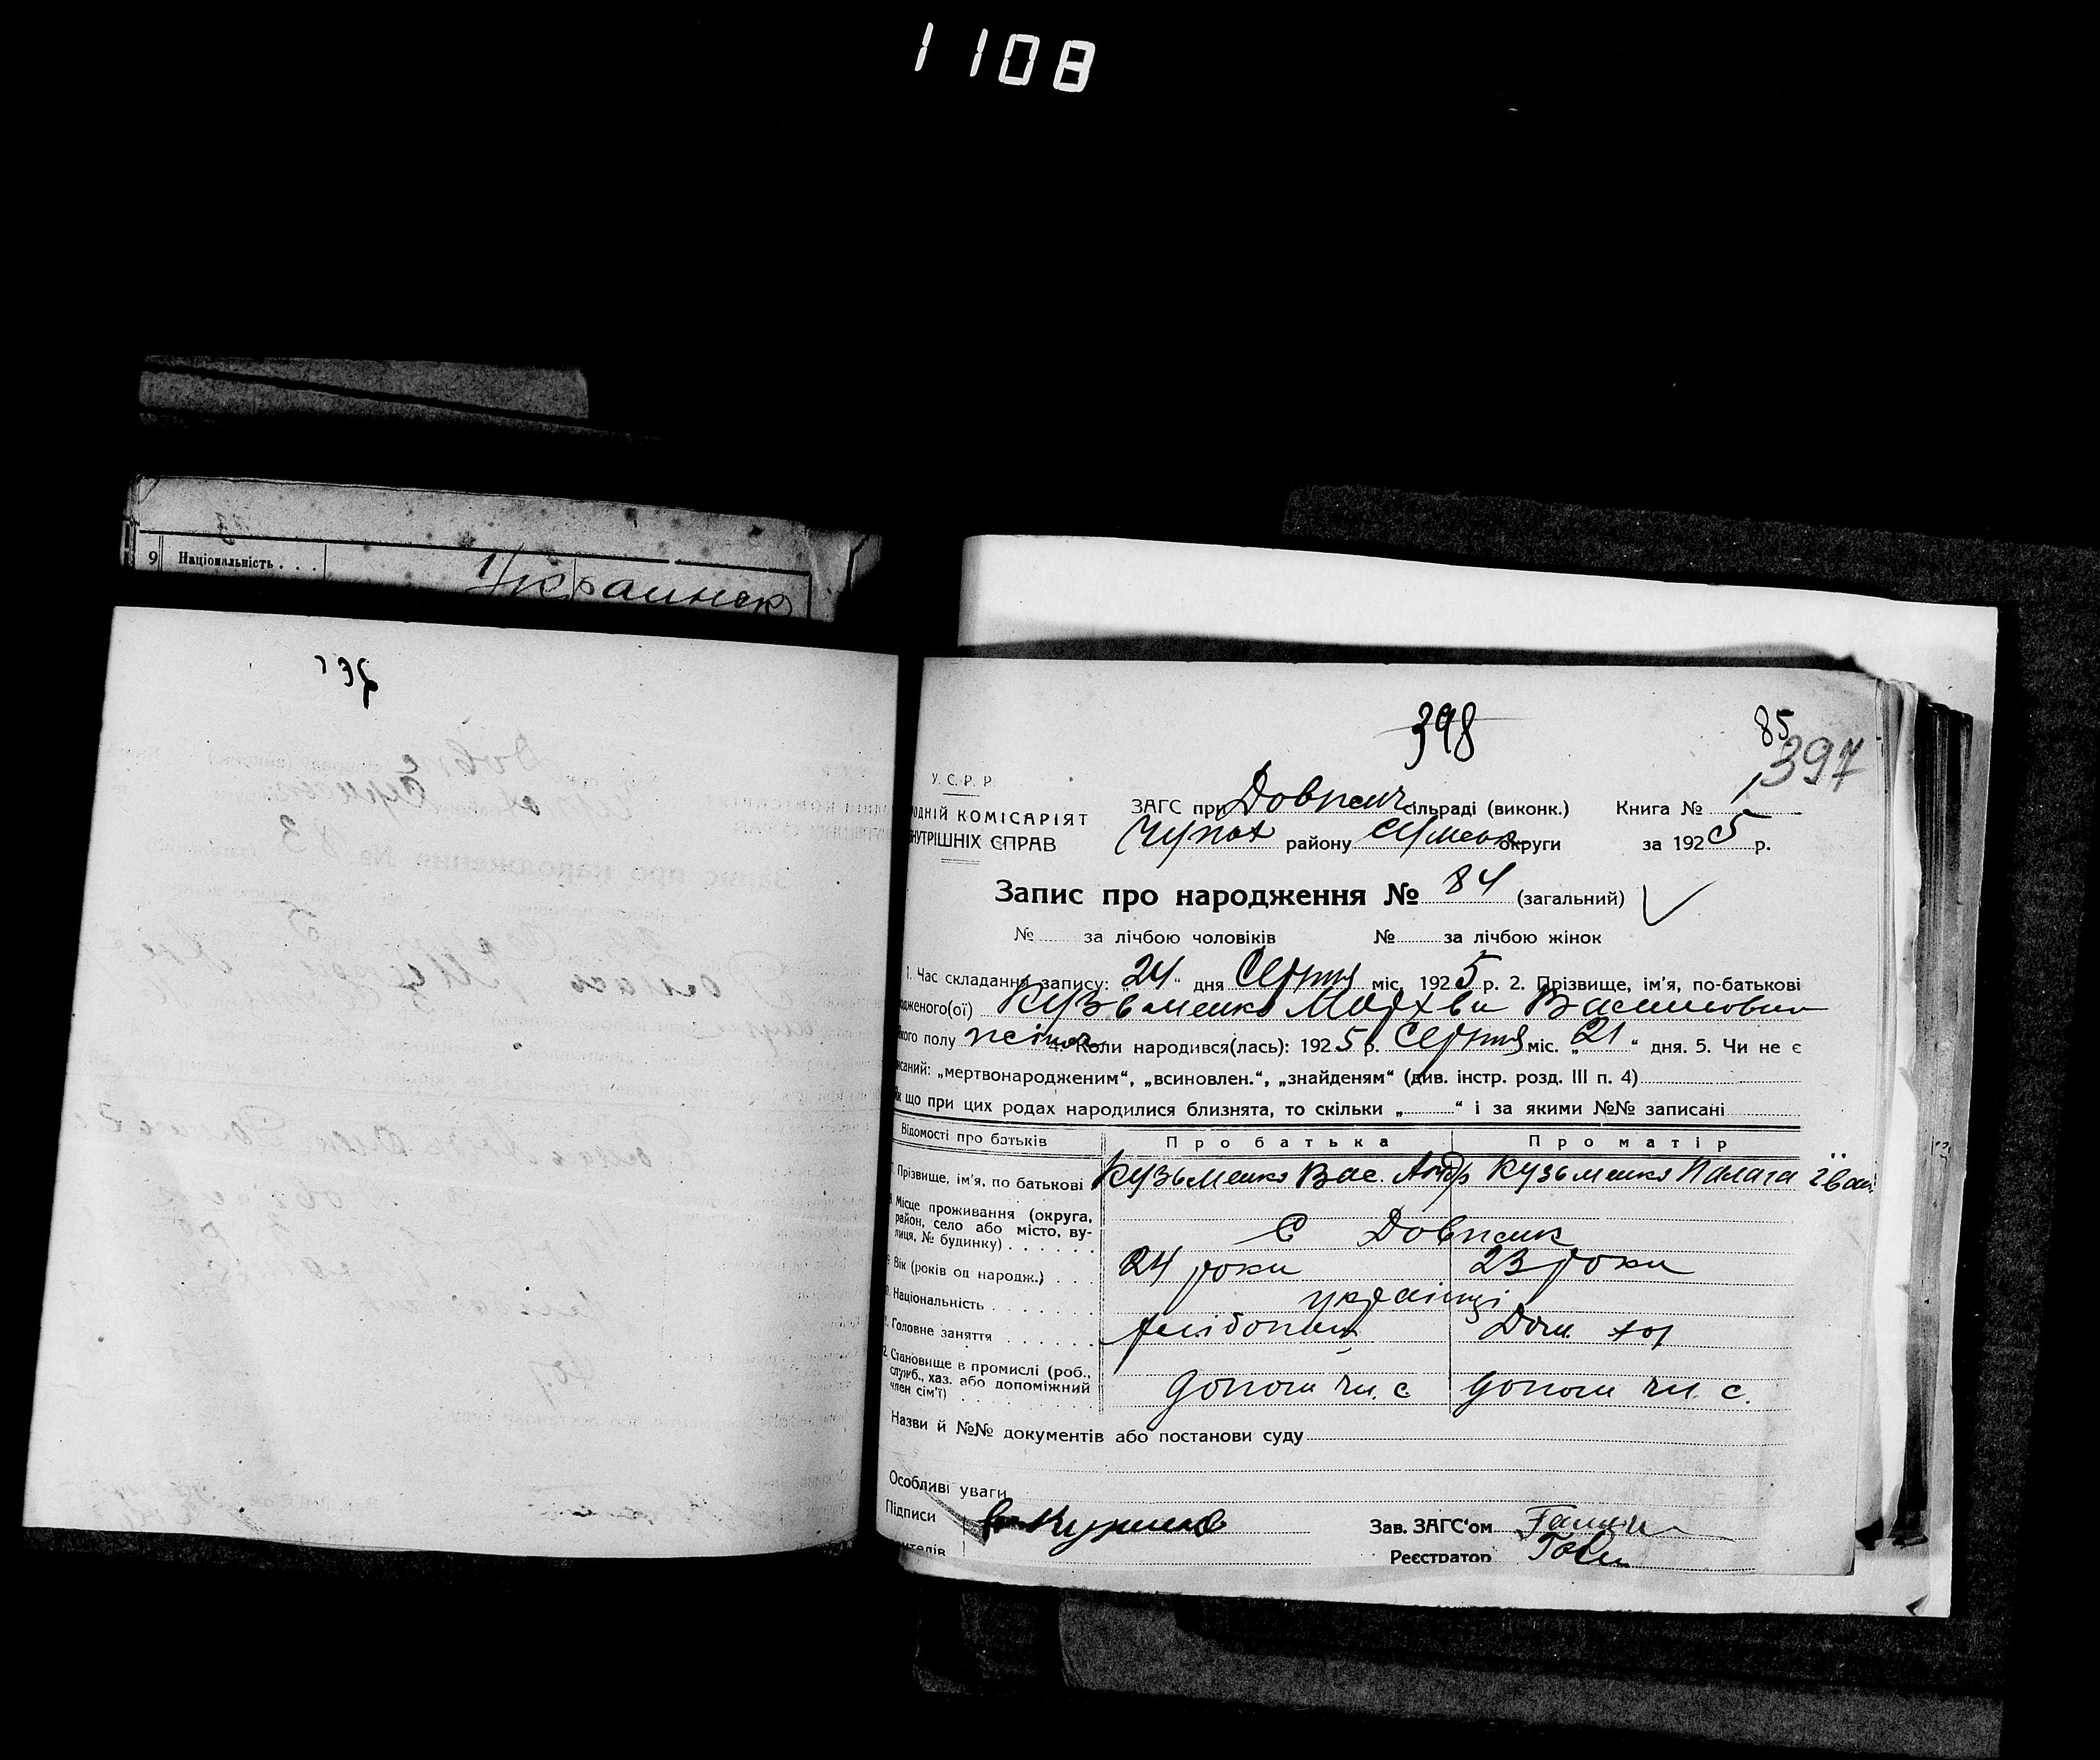 1108
9 Національність . . .
Украинск
398
85
397
У. С. Р. Р.
ОДНІЙ КОМІСАРІЯТ
НУТРІШНІХ СПРАВ
ЗАГС при Довжик сільраді (виконк.) Книга № 1
Чупах району Сумськ округи за 1925 р.
Запис про народження № 84 (загальний)
№ за лічбою чоловіків № за лічбою жінок
1. Час складання запису: „24“ дня Серпня міс. 1925 р. 2. Прізвище, ім'я, по-батькові
одженого(ої) Кузьменко Мархва Васильовна
кого полу жіноч 4. Коли народився(лась): 1925 р. Серпня міс. „21“ дня. 5. Чи не є
исаний: „мертвонародженим“, „всиновлен.“, „знайденям“ (див. інстр. розд. III п. 4)
к що при цих родах народилися близнята, то скільки „ “ і за якими №№ записані
Відомості про батьків Про батька Про матір
Прізвище, ім'я, по батькові Кузьменко Вас. Андр Кузьменко Палага Іван.
Місце проживання (округа, район, село або місто, вулиця, № будинку) . . . . . . С Довжик
Вік (років од народж.) . . . 24 роки 23 роки
Національність . . . . . . . українці
Головне заняття . . . . . . хлібопаш Дом. хоз
2. Становище в промислі (роб., служб., хаз. або допоміжний член сім'ї) . . . . . . . . . допом чл. с допом чл. с.
Назви й №№ документів або постанови суду
Особливі уваги
Підписи
Зав. ЗАГС'ом
Реєстратор